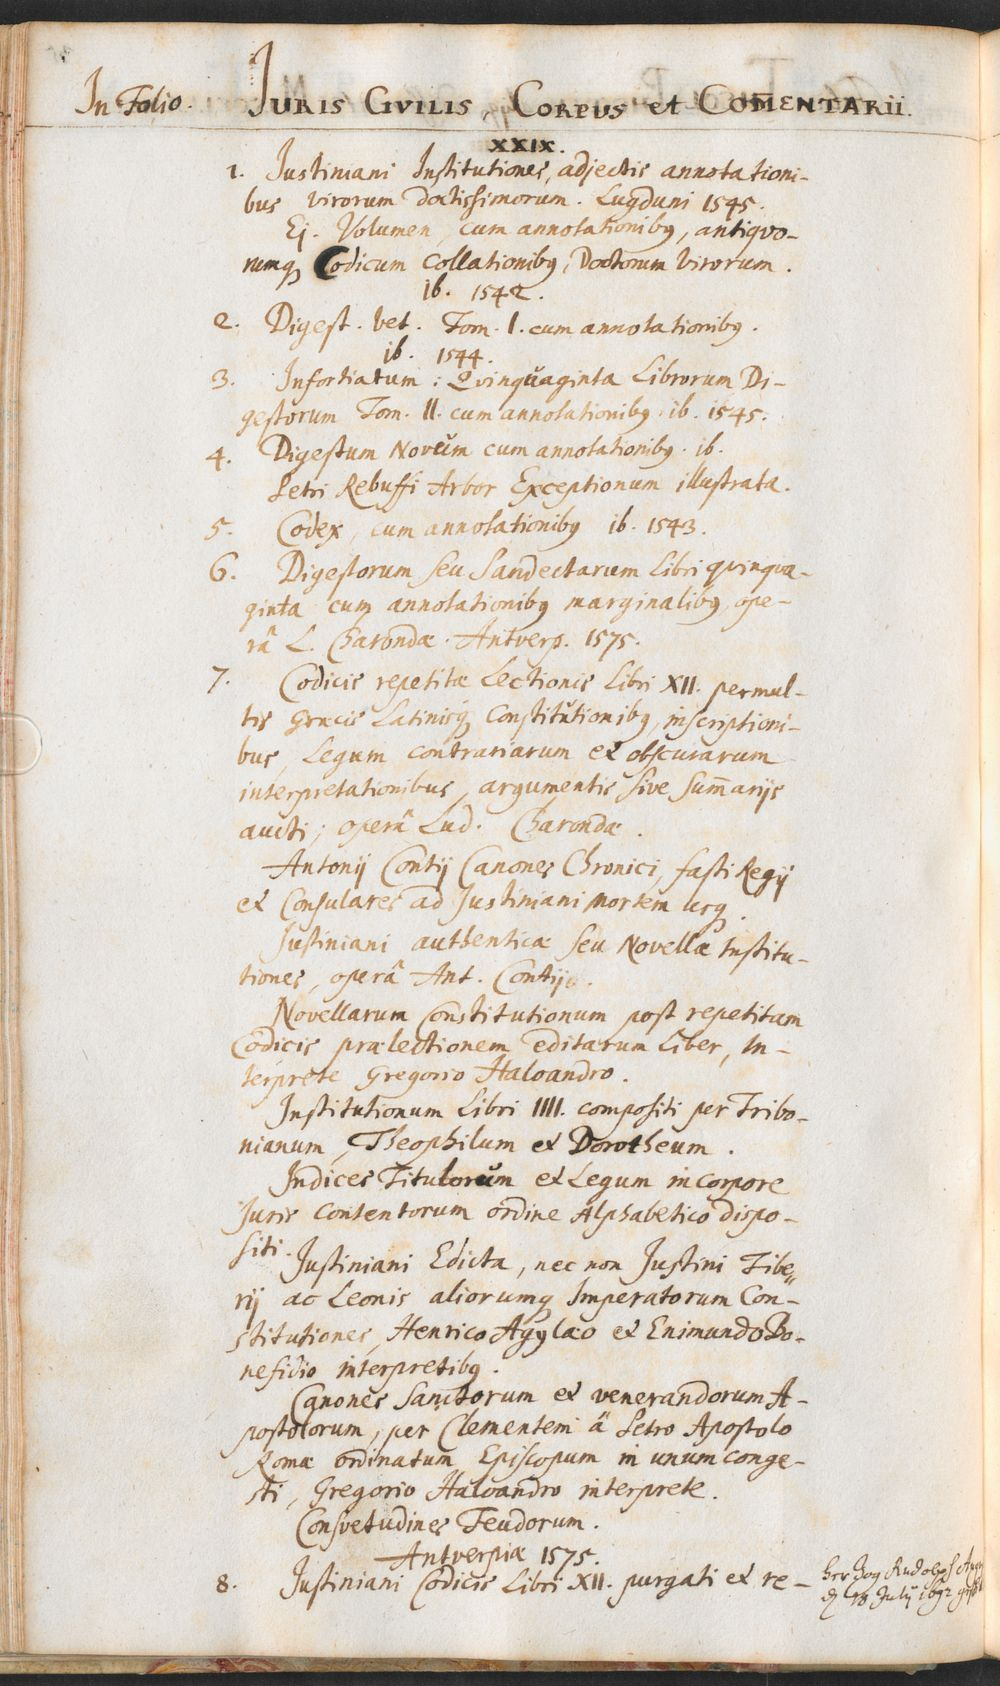 In Folio. JURIS CIVILIS, CORPUS et COM̄ENTARII.
XXIX.
1. Justiniani Institutiones, adjectis annotationi-
bus virorum doctissimorum. Lugduni 1545.
Ej. Volumen, cum annotationibꝰ, antiqvo-
rumqꝫ Codicum collationibꝰ, Doctorum Virorum.
ib. 1542.
2. Digest. vet. Tom. I. cum annotationibꝰ.
ib. 1544.
3. Infortiatum: Qvinqŭaginta Librorum Di-
gestorum Tom. II. cum annotationibꝰ. ib. 1545.
4. Digestum Novŭm cum annotationibꝰ. ib.
Petri Rebuffi Arbor Exceptionum illustrata.
5. Codex, cum annotationibꝰ ib. 1543.
6. Digestorum seu Pandectarum Libri qvinqva-
ginta cum annotationibꝰ marginalibꝰ, ope-
râ L. Charondæ. Antverp. 1575.
7. Codicis repetitæ Lectionis Libri XII. permul-
tis Græcis Latinisqꝫ Constitŭtionibꝰ, inscriptioni-
bus, Legum contrariarum et obscurarum
interpretationibus, argumentis sive Sum̄arijs
aucti; operâ Lud. Charondæ.
Antonij Contij Canones Chronici, fasti Regij
et Consulares ad Justiniani mortem usqꝫ.
Justiniani authenticæ seu Novellæ Institu-
tiones, operâ Ant. Contij.
Novellarum Constitutionum post repetitam
Codicis prælectionem editarum Liber, In-
terprete Gregorio Haloandro.
Institutionum Libri IIII. compositi per Tribo-
nianum, Theophilum et Dorotheum.
Indices Titulorŭm et Legum in corpore
Juris contentorum ordine Alphabetico dispo-
siti.
Justiniani Edicta, nec non Justini Tibe„
rij ac Leonis aliorumqꝫ Imperatorum Con-
stitutiones, Henrico Agylæo et Enimundo Bo-
nefidio interpretibꝰ.
Canones Sanctorum et venerandorum A-
postolorum, per Clementem â Petro Apostolo
Romæ ordinatum Episcopum in unum conge-
sti, Gregorio Haloandro interprete.
Consvetudines Feudorum.
Antverpiæ 1575.
8. Justiniani Codicis Libri XII. purgati et re-
Rudolph
18 Julij 1692